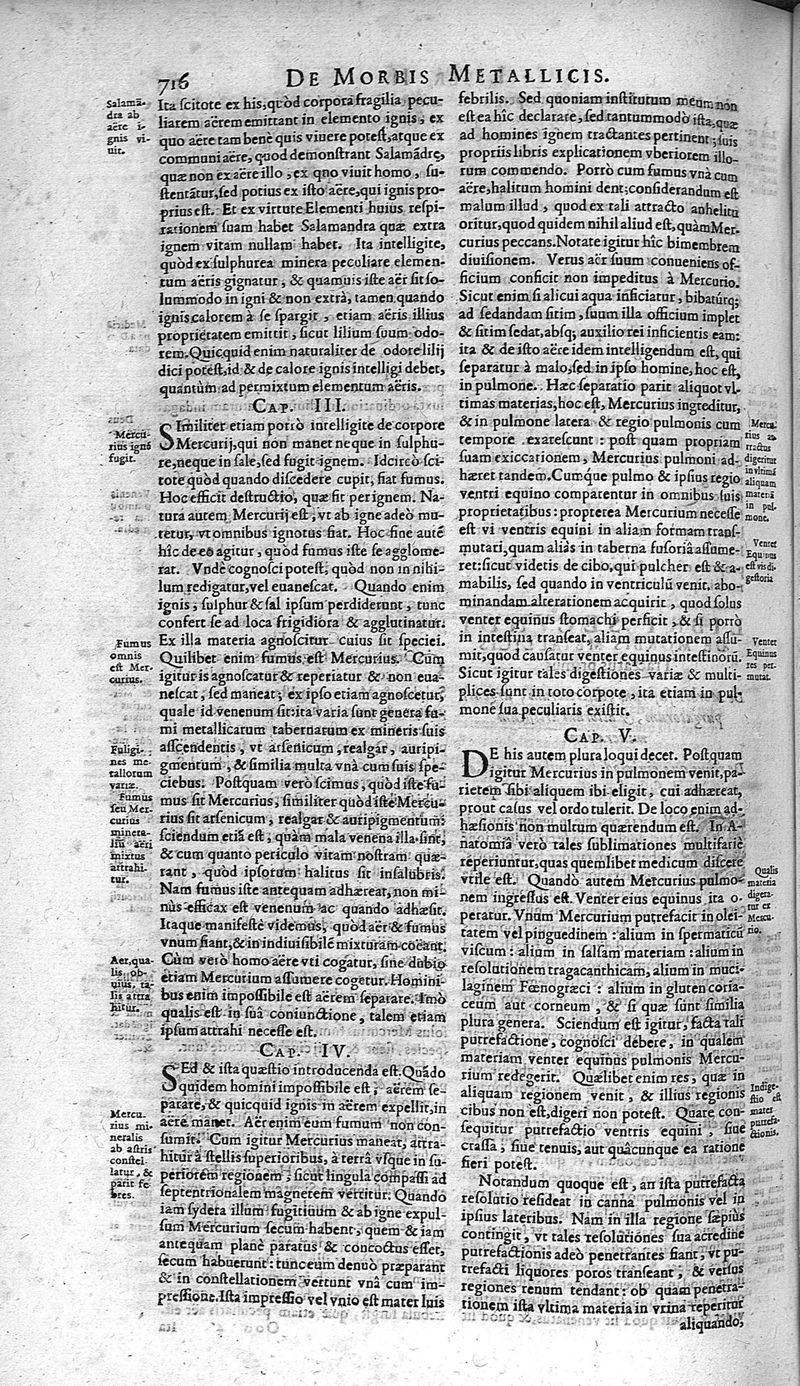 716 DE MORBIS METALLICIS.
Salamā-
dra ab
aëre i-
gnis vi-
uit.
Ita ſcitote ex his, quòd corpora fragilia pecu-
liarem aërem emittant in elemento ignis, ex
quo aëre tam benè quis viuere poteſt, atque ex
communi aëre, quod demonſtrant Salamādrę,
quæ non ex aëre illo, ex qno viuit homo, ſu-
ſtentātur, ſed potius ex iſto aëre, qui ignis pro-
prius eſt. Et ex virtute Elementi huius reſpi-
rationem ſuam habet Salamandra quæ extra
ignem vitam nullam habet. Ita intelligite,
quòd ex ſulphurea minera peculiare elemen-
tum aëris gignatur, & quamuis iſte aër ſit ſo-
lummodo in igni & non extrà, tamen quando
ignis calorem à ſe ſpargit, etiam aëris illius
proprietatem emittit, ſicut lilium ſuum odo-
rem. Quicquid enim naturaliter de odore lilij
dici poteſt, id & de calore ignis intelligi debet,
quantùm ad permixtum elementum aëris.
CAP. III.
Mercu-
rius ignē
fugit.
SImiliter etiam porrò intelligite de corpore
Mercurij, qui non manet neque in ſulphu-
re, neque in ſale, ſed fugit ignem. Idcircò ſci-
tote quòd quando diſcedere cupit, fiat fumus.
Hoc efficit deſtructio, quæ ſit per ignem. Na-
tura autem Mercurij eſt, vt ab igne adeò mu-
tetur, vt omnibus ignotus fiat. Hoc ſine autē
hîc de eo agitur, quòd fumus iſte ſe agglome-
rat. Vndè cognoſci poteſt, quòd non in nihi-
lum redigatur, vel euaneſcat. Quando enim
ignis, ſulphur & ſal ipſum perdiderunt, tunc
confert ſe ad loca frigidiora & agglutinatur.
Fumus
omnis
eſt Mer-
curius.
Ex illa materia agnoſcitur cuius ſit ſpeciei.
Quilibet enim fumus eſt Mercurius. Cùm
igitur is agnoſcatur & reperiatur & non eua-
neſcat, ſed maneat; ex ipſo etiam agnoſcetur,
quale id venenum ſit: ita varia ſunt genera fu-
mi metallicarum tabernarum ex mineris ſuis
Fuligi-
nes me-
tallorum
variæ.
aſſcendentis, vt arſenicum, realgar, auripi-
gmentum, & ſimilia multa vnà cum ſuis ſpe-
ciebus. Poſtquam verò ſcimus, quòd iſte fu-
Fumus
ſeu Mer-
curius
minera-
liū aëri
mixtus
attrahi-
tur.
mus ſit Mercurius, ſimiliter quòd iſte Mercu-
rius ſit arſenicum, realgar & auripigmentum:
ſciendum etiā eſt, quàm mala venena illa ſint,
& cum quanto periculo vitam noſtram quæ-
rant, quòd ipſorum halitus ſit inſalubris.
Nam fumus iſte antequam adhæreat, non mi-
nùs efficax eſt venenum ac quando adhæſit.
Itaque manifeſtè videmus, quòd aër & fumus
vnum fiant, & in indiuiſibilē mixturam coëant.
Aer, qua-
lis ob-
uius, ta-
lis attra
hitur.
Cùm verò homo aëre vti cogatur, ſine dubio
etiam Mercurium aſſumere cogetur. Homini-
bus enim impoſſibile eſt aërem ſeparare. Imò
qualis eſt in ſuâ coniunctione, talem etiam
ipſum attrahi neceſſe eſt.
CAP. IV.
SEd & iſta quæſtio introducenda eſt. Quādo
quidem homini impoſſibile eſt, aërem ſe-
parare, & quicquid ignis in aërem expellit, in
Mercu.
rius mi-
neralis
ab aſtris
conſtel-
latur, &
parit fe-
bres.
aëre manet. Aër enim eum fumum non con-
ſumit. Cùm igitur Mercurius maneat, attra-
hitur à ſtellis ſuperioribus, à terrâ vſque in ſu-
periorem regionem, ſicut lingula compaſſi ad
ſeptentrionalem magnetem vertitur. Quando
iam ſydera illum fugitiuum & ab igne expul-
ſum Mercurium ſecum habent, quem & iam
antequam planè paratus & concoctus eſſet,
ſecum habuerunt: tunc eum denuò præparant
& in conſtellationem vertunt vnâ cum im-
preſſione. Iſta impreſſio vel vnio eſt mater luis
febrilis. Sed quoniam inſtitutum meum non
eſt ea hîc declarare, ſed tantummodò iſta, quæ
ad homines ignem tractantes pertinent; ſuis
propriis libris explicationem vberiorem illo-
rum commendo. Porrò cum fumus vnà cum
aëre, halitum homini dent; conſiderandum eſt
malum illud, quod ex tali attracto anhelitu
oritur, quod quidem nihil aliud eſt, quàm Mer-
curius peccans. Notate igitur hîc bimembrem
diuiſionem. Verus aër ſuum conueniens of-
ficium conficit non impeditus à Mercurio.
Sicut enim ſi alicui aqua inficiatur, bibatúrq;
ad ſedandam ſitim, ſuum illa officium implet
& ſitim ſedat, abſq; auxilio rei inficientis eam:
ita & de iſto aëre idem intelligendum eſt, qui
ſeparatur à malo, ſed in ipſo homine, hoc eſt,
in pulmone. Hæc ſeparatio parit aliquot vl-
timas materias, hoc eſt, Mercurius ingreditur,
Mercu.
rius at-
tractus
digeritur
in vltimā
aliquam
materiā
in pul-
mone.
& in pulmone latera & regio pulmonis cum
tempore exareſcunt: poſt quam propriam
ſuam exiccationem, Mercurius pulmoni ad-
hæret tandem. Cúmque pulmo & ipſius regio
ventri equino comparentur in omnibus ſuis
proprietatibus: propterea Mercurium neceſſe
eſt vi ventris equini in aliam formam tranſ-
Venter
Equinus
eſt vis di-
geſtoria
mutari, quam aliàs in taberna fuſoriâ aſſume-
ret: ſicut videtis de cibo, qui pulcher eſt & a-
mabilis, ſed quando in ventriculū venit, abo-
minandam alterationem acquirit, quod ſolus
venter equinus ſtomachi perficit; & ſi porrò
Venter
Equinus
res per-
mutat.
in inteſtina tranſeat, aliam mutationem aſſu-
mit, quod cauſatur venter equinus inteſtinorū.
Sicut igitur tales digeſtiones variæ & multi-
plices ſunt in toto corpore, ita etiam in pul-
mone ſua peculiaris exiſtit.
CAP. V.
DE his autem plura loqui decet. Poſtquam
igitur Mercurius in pulmonem venit, pa-
rietem ſibi aliquem ibi eligit, cui adhæreat,
prout caſus vel ordo tulerit. De loco enim ad-
hæſionis non multum quærendum eſt. In A-
natomiâ verò tales ſublimationes multifariè
reperiuntur, quas quemlibet medicum diſcere
Qualis
materia
digera-
tur ex
Mercu-
rio.
vtile eſt. Quandò autem Mercurius pulmo-
nem ingreſſus eſt. Venter eius equinus ita o-
peratur. Vnum Mercurium putrefacit in olei-
tatem vel pinguedinem: alium in ſpermaticū
viſcum: alium in ſalſam materiam: alium in
reſolutionem tragacanthicam, alium in muci-
laginem Fœnogræci: alium in gluten coria-
ceum aut corneum, & ſi quæ ſunt ſimilia
plura genera. Sciendum eſt igitur, facta tali
putrefactione, cognoſci debere, in qualem
materiam venter equinus pulmonis Mercu-
rium redegerit. Quælibet enim res, quæ in
Indige-
ſtio eſt
mater
putrefa-
ctionis.
aliquam regionem venit, & illius regionis
cibus non eſt, digeri non poteſt. Quare con-
ſequitur putrefactio ventris equini, ſiue
craſſa, ſiue tenuis, aut quâcunque ea ratione
fieri poteſt.
Notandum quoque eſt, an iſta putrefacta
reſolutio reſideat in canna pulmonis vel in
ipſius lateribus. Nam in illa regione ſæpius
contingit, vt tales reſolutiones ſua acredine
putrefactionis adeò penetrantes fiant, vt pu-
trefacti liquores poros tranſeant, & verſus
regiones renum tendant: ob quam penetra-
tionem iſta vltima materia in vrina reperitur
aliquando,